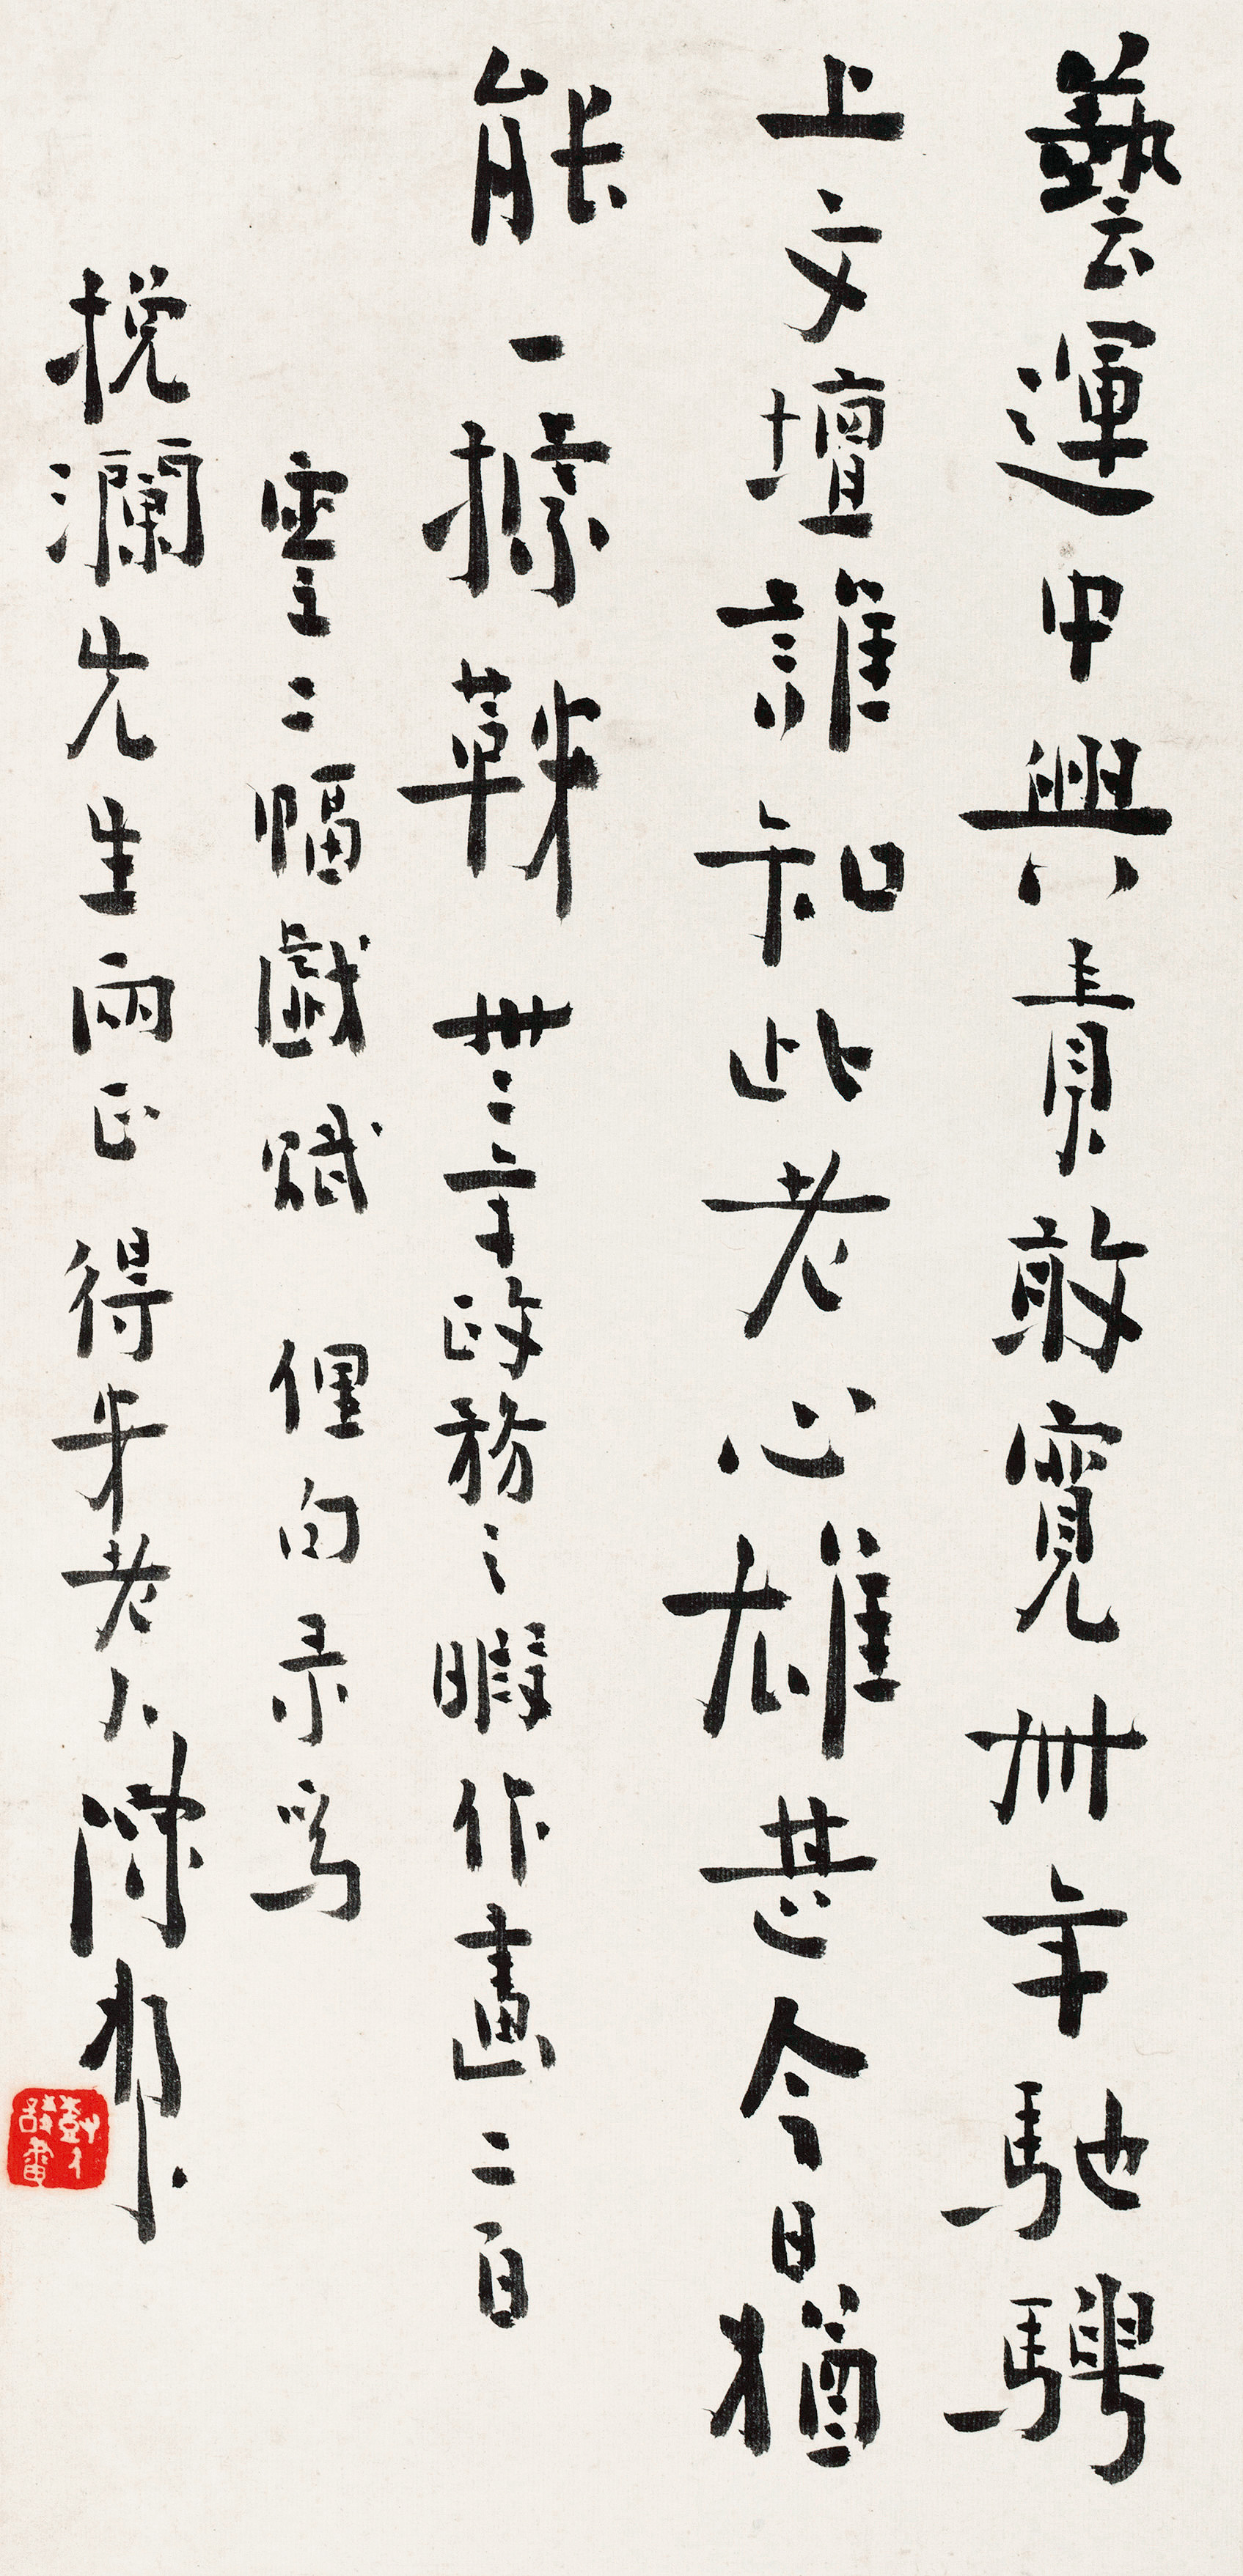 藝運中興責敢寬卅年馳騁
上文壇誰知此老心雄甚今日猶
能一據鞍卅二年政務之暇作畫二百
零二幅戲賦俚句录為
挽瀾先生兩正得未老人陳